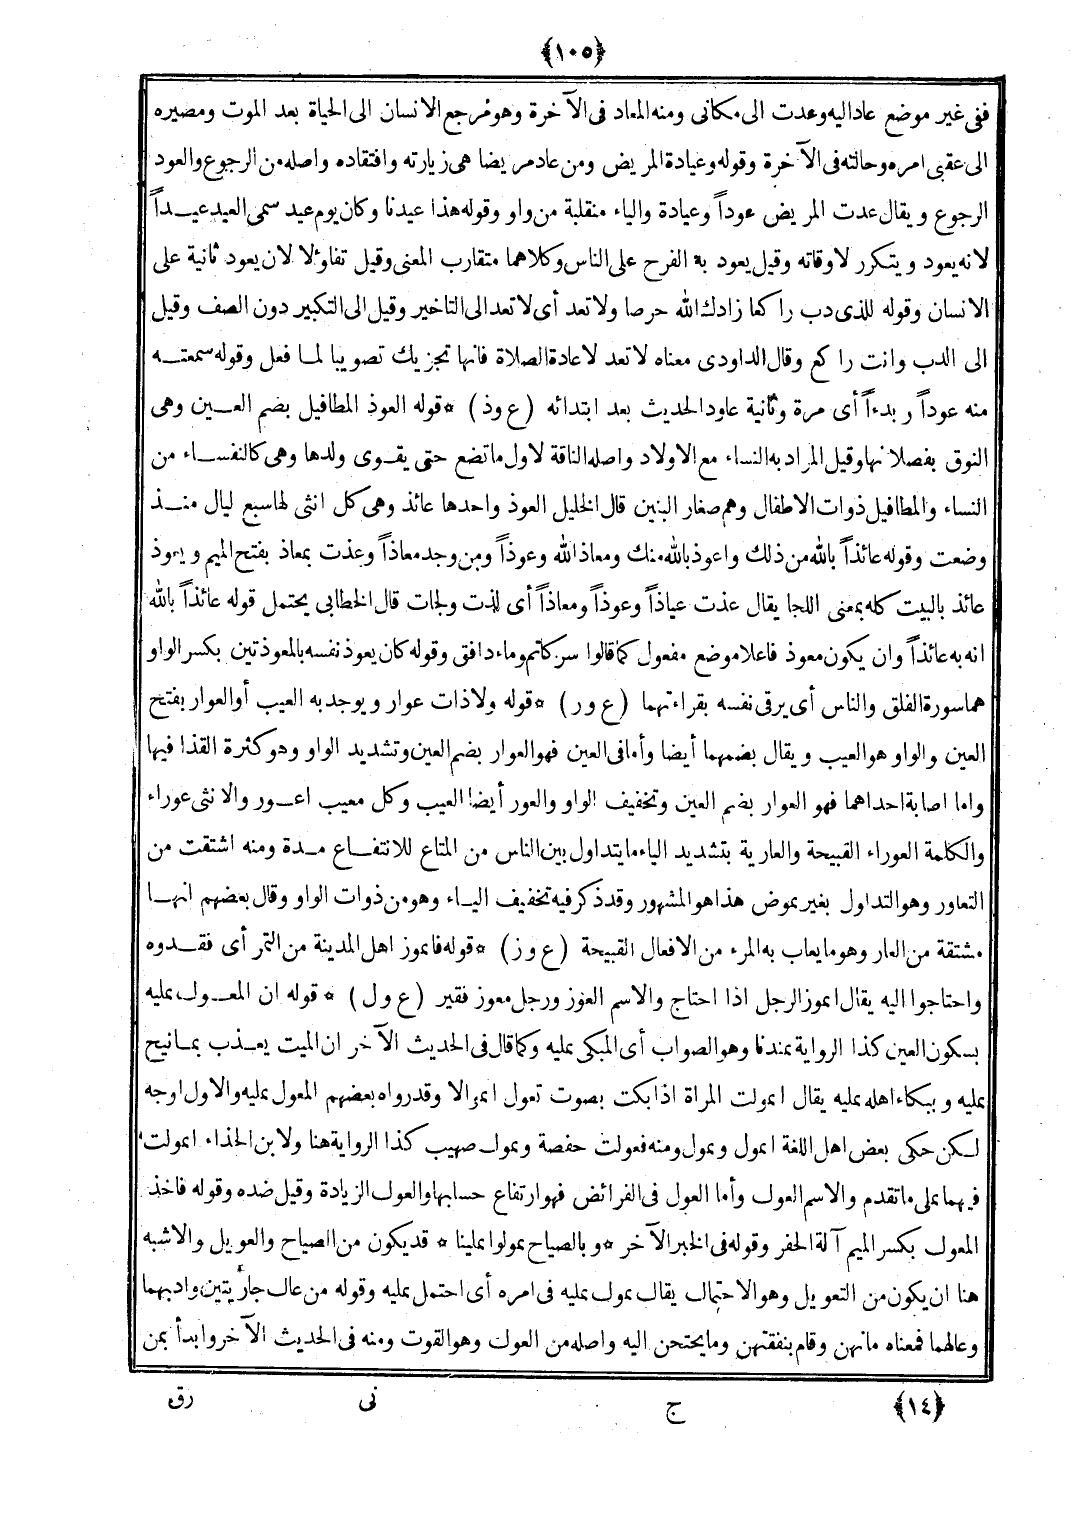 ﴿١٠٥﴾
ففى غير موضع عاد اليه وعدت الى مكانى ومنه المعاد فى الآخرة وهو مرجع الانسان الى الحياة بعد الموت ومصيره
الى عقبى امره وحالته فى الآخرة وقوله وعيادة المريض ومن عاد مريضا هى زيارته وافتقاده واصله من الرجوع والعود
الرجوع ويقال عدت المريض عوداً وعيادة والياء منقلبة من واو وقوله هذا عيدنا وكان يوم عيد سمى العيد عيـداً
لانه يعود ويتكرر لاوقاته وقيل يعود به الفرح على الناس وكلاهما متقارب المعنى وقيل تفاؤلا لان يعود ثانية على
الانسان وقوله للذى دب راكعا زادك الله حرصا ولا تعد أى لا تعد الى التاخير وقيل الى التكبير دون الصف وقيل
الى الدب وانت راكع وقال الداودى معناه لا تعد لاعادة الصلاة فانها تجزيك تصويبا لمـا فعل وقوله سمعتــه
منه عوداً وبدءاً أى مرة وثانية عاود الحديث بعد ابتدائه (ع وذ) * قوله العوذ المطافيل بضم العـين وهى
النوق بفصلانها وقيل المراد به النساء مع الاولاد واصله الناقة لاول ما تضع حتى يقـوى ولدها وهى كالنفسـاء من
النساء والمطافيل ذوات الاطفال وهم صغار البنين قال الخليل العوذ واحدها عائذ وهى كل انثى لها سبع ليال منـذ
وضعت وقوله عائذاً بالله من ذلك واعوذ بالله منك ومعاذ الله وعوذاً ومن وجد معاذاً وعذت بمعاذ بفتح الميم ويعوذ
عائذ بالبيت كله بمعنى اللجا يقال عذت عياذاً وعوذاً ومعاذاً أى لذت ولجات قال الخطابى يحتمل قوله عائذاً بالله
انه به عائذاً وان يكون معوذ فاعلا موضع مفعول كما قالوا سر كاتم وماء دافق وقوله كان يعوذ نفسه بالمعوذتين بكسر الواو
هما سورة الفلق والناس أى يرقى نفسه بقراءتهما (ع ور) * قوله ولا ذات عوار ويوجد به العيب أو العوار بفتح
العين والواو هو العيب ويقال بضمهما أيضا وأما فى العين فهو العوار بضم العين وتشديد الواو وهو كثرة القذا فيها
واما اصابة احداهما فهو العوار بضم العين وتخفيف الواو والعور أيضا العيب وكل معيب اعـور والانثى عوراء
والكلمة العوراء القبيحة والعارية بتشديد الياء ما يتداول بين الناس من المتاع للانتفـاع مـدة ومنه اشتقت من
التعاور وهو التداول بغير عوض هذا هو المشهور وقد ذكر فيه تخفيف اليـاء وهو من ذوات الواو وقال بعضهم انهـا
مشتقة من العار وهو ما يعاب به المرء من الافعال القبيحة (ع وز) * قوله فاعوز اهل المدينة من التمر أى فقـدوه
واحتاجوا اليه يقال اعوز الرجل اذا احتاج والاسم العوز ورجل معوز فقير (ع ول) * قوله ان المعـول عليه
بسكون العين كذا الرواية عندنا وهو الصواب أى المبكى عليه وكما قال فى الحديث الآخر ان الميت يعـذب بمـا نيح
عليه وببكاء اهله عليه يقال اعولت المراة اذا بكت بصوت تعول اعوالا وقد رواه بعضهم المعول عليه والاول اوجه
لـكن حكى بعض اهل اللغة اعول وعول ومنه فعولت حفصة وعول صهيب كذا الرواية هنا ولابن الحذاء اعولت
فيهما على ما تقدم والاسم العول وأما العول فى الفرائض فهو ارتفاع حسابها والعول الزيادة وقيل ضده وقوله فاخذ
المعول بكسر الميم آلة الحفر وقوله فى الخبر الآخر * وبالصياح عولوا علينا * قد يكون من الصياح والعويل والاشبه
هنا ان يكون من التعويل وهو الاحتمال يقال عول عليه فى امره أى احتمل عليه وقوله من عال جاريتين وادبهما
وعالهما فمعناه مانهن وقام بنفقتهن وما يحتجن اليه واصله من العول وهو القوت ومنه فى الحديث الآخر وابدأ بمن
﴿١٤﴾ ج نى رق